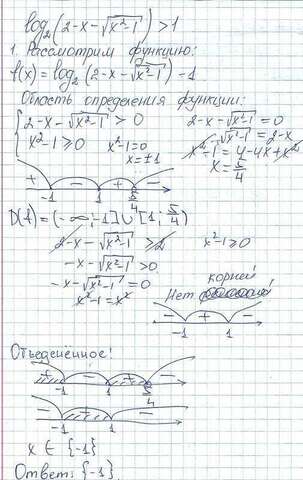 log₂(2-x-√x²-1) > 1
1. Рассмотрим функцию:
f(x) = log₂(2-x-√x²-1) - 1
Область определения функции:
{ 2-x-√x²-1 > 0
x²-1 ≥ 0
x²-1=0
x=±1
2-x-√x²-1 = 0
√x²-1 = 2-x
x²-1 = 4-4x+x²
x = 5/4
+ - + -
-1 1 5/4
D(f) = (-∞;-1]∪[1; 5/4)
2-x-√x²-1 > 2
-x-√x²-1 > 0
-x-√x²-1 = 0
x²-1 = x²
x²-1 ≥ 0
корней
Нет
- + -
-1 1
Отъеденённое!
+ - + -
-1 1 5/4
- + -
-1 1
x ∈ {-1}
Ответ: {-1}.